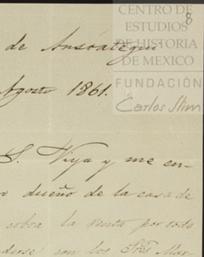 CENTRO DE
8
ESTUDIOS
DE HISTORIA
DE MEXICO
FUNDACIÓN
Carlos Slim
de Anzoátegui
Agosto 1861.
S. Vija y me en-
dueño de la casa de
sobre la venta por todo
con los Sres Mar-